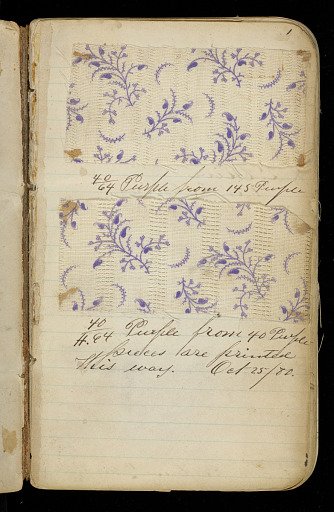 1
40/64 Purple from 145 Purple
40
H. 64 Purple from 40 Purple
pieces are printed
this way. Oct 25/80.